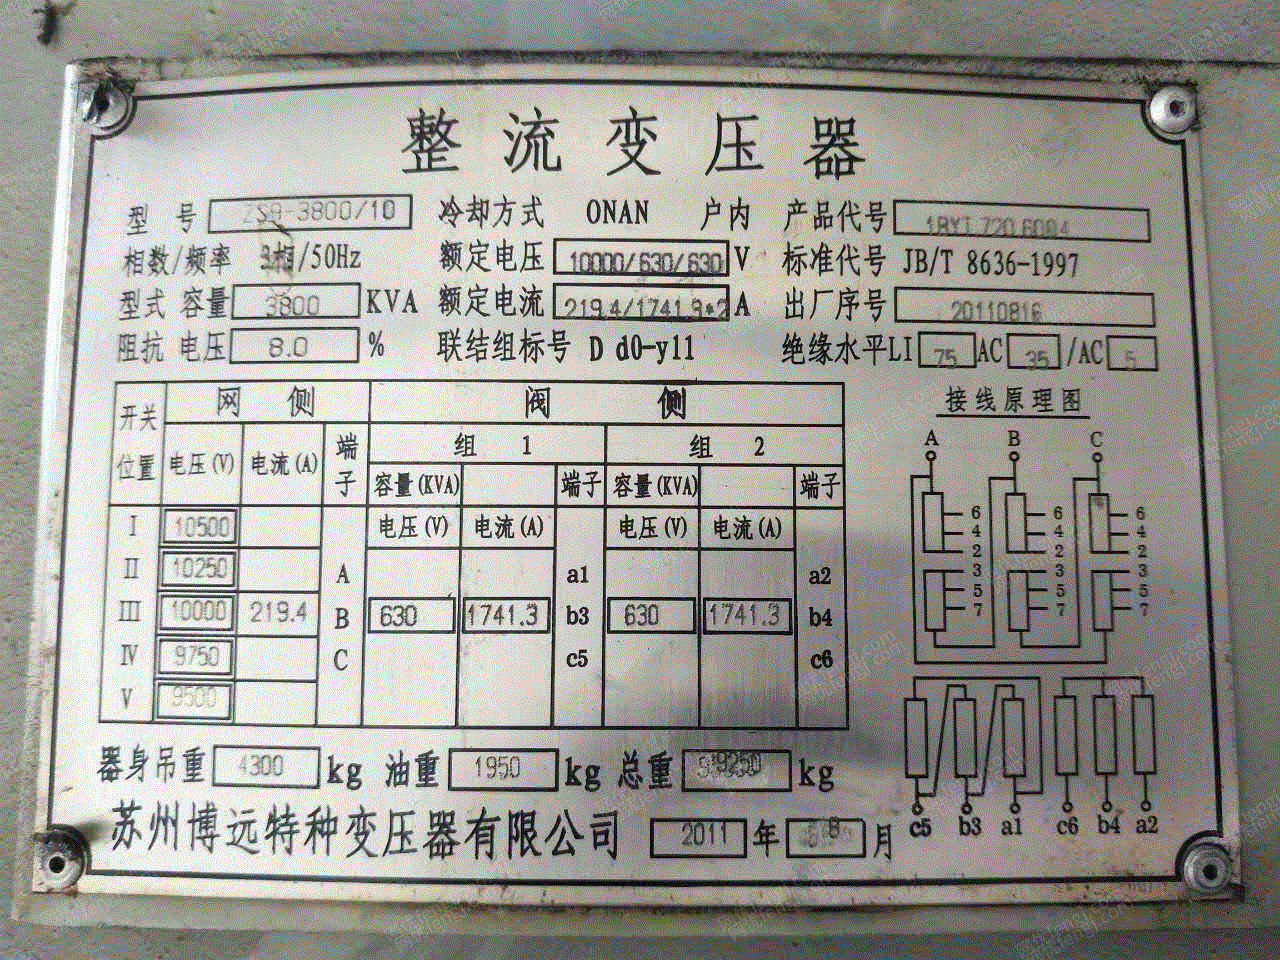 整流变压器
型号 ZSQ-3800/10 冷却方式 ONAN 户内 产品代号
相数/频率 3相/50Hz 额定电压 10000/630/630 V 标准代号 JB/T 8636-1997
型式容量 3800 KVA 额定电流 219.4/1741.3*2 A 出厂序号 20110816
阻抗电压 8.0 % 联结组标号 D d0-y11 绝缘水平LI 75 AC 35 /AC 5
开关位置 网侧 阀侧
电压(V) 电流(A) 端子 组1 组2
容量(KVA) 端子 容量(KVA) 端子
电压(V) 电流(A) 电压(V) 电流(A)
I 10500
II 10250 A a1 a2
III 10000 219.4 B 630 1741.3 b3 630 1741.3 b4
IV 9750 C c5 c6
V 9500
接线原理图
A B C
6 6 6
4 4 4
2 2 2
3 3 3
5 5 5
7 7 7
c5 b3 a1 c6 b4 a2
器身吊重 4300 kg 油重 1950 kg 总重 9250 kg
苏州博远特种变压器有限公司 2011 年 8 月